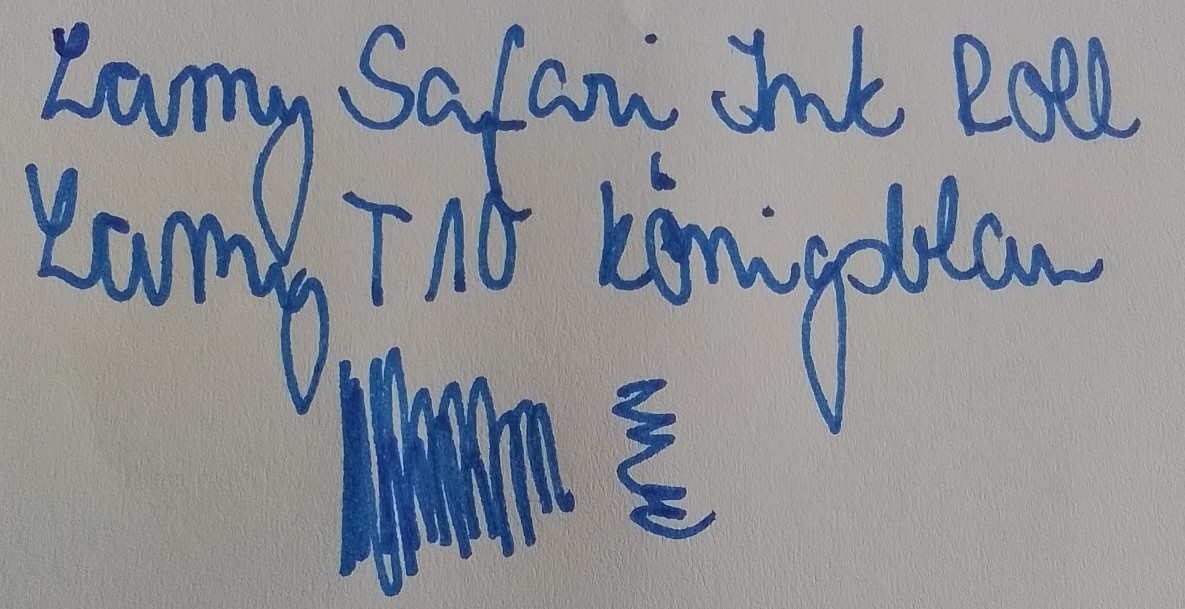 Lamy Safari Ink Roll
Lamy T10 königsblau